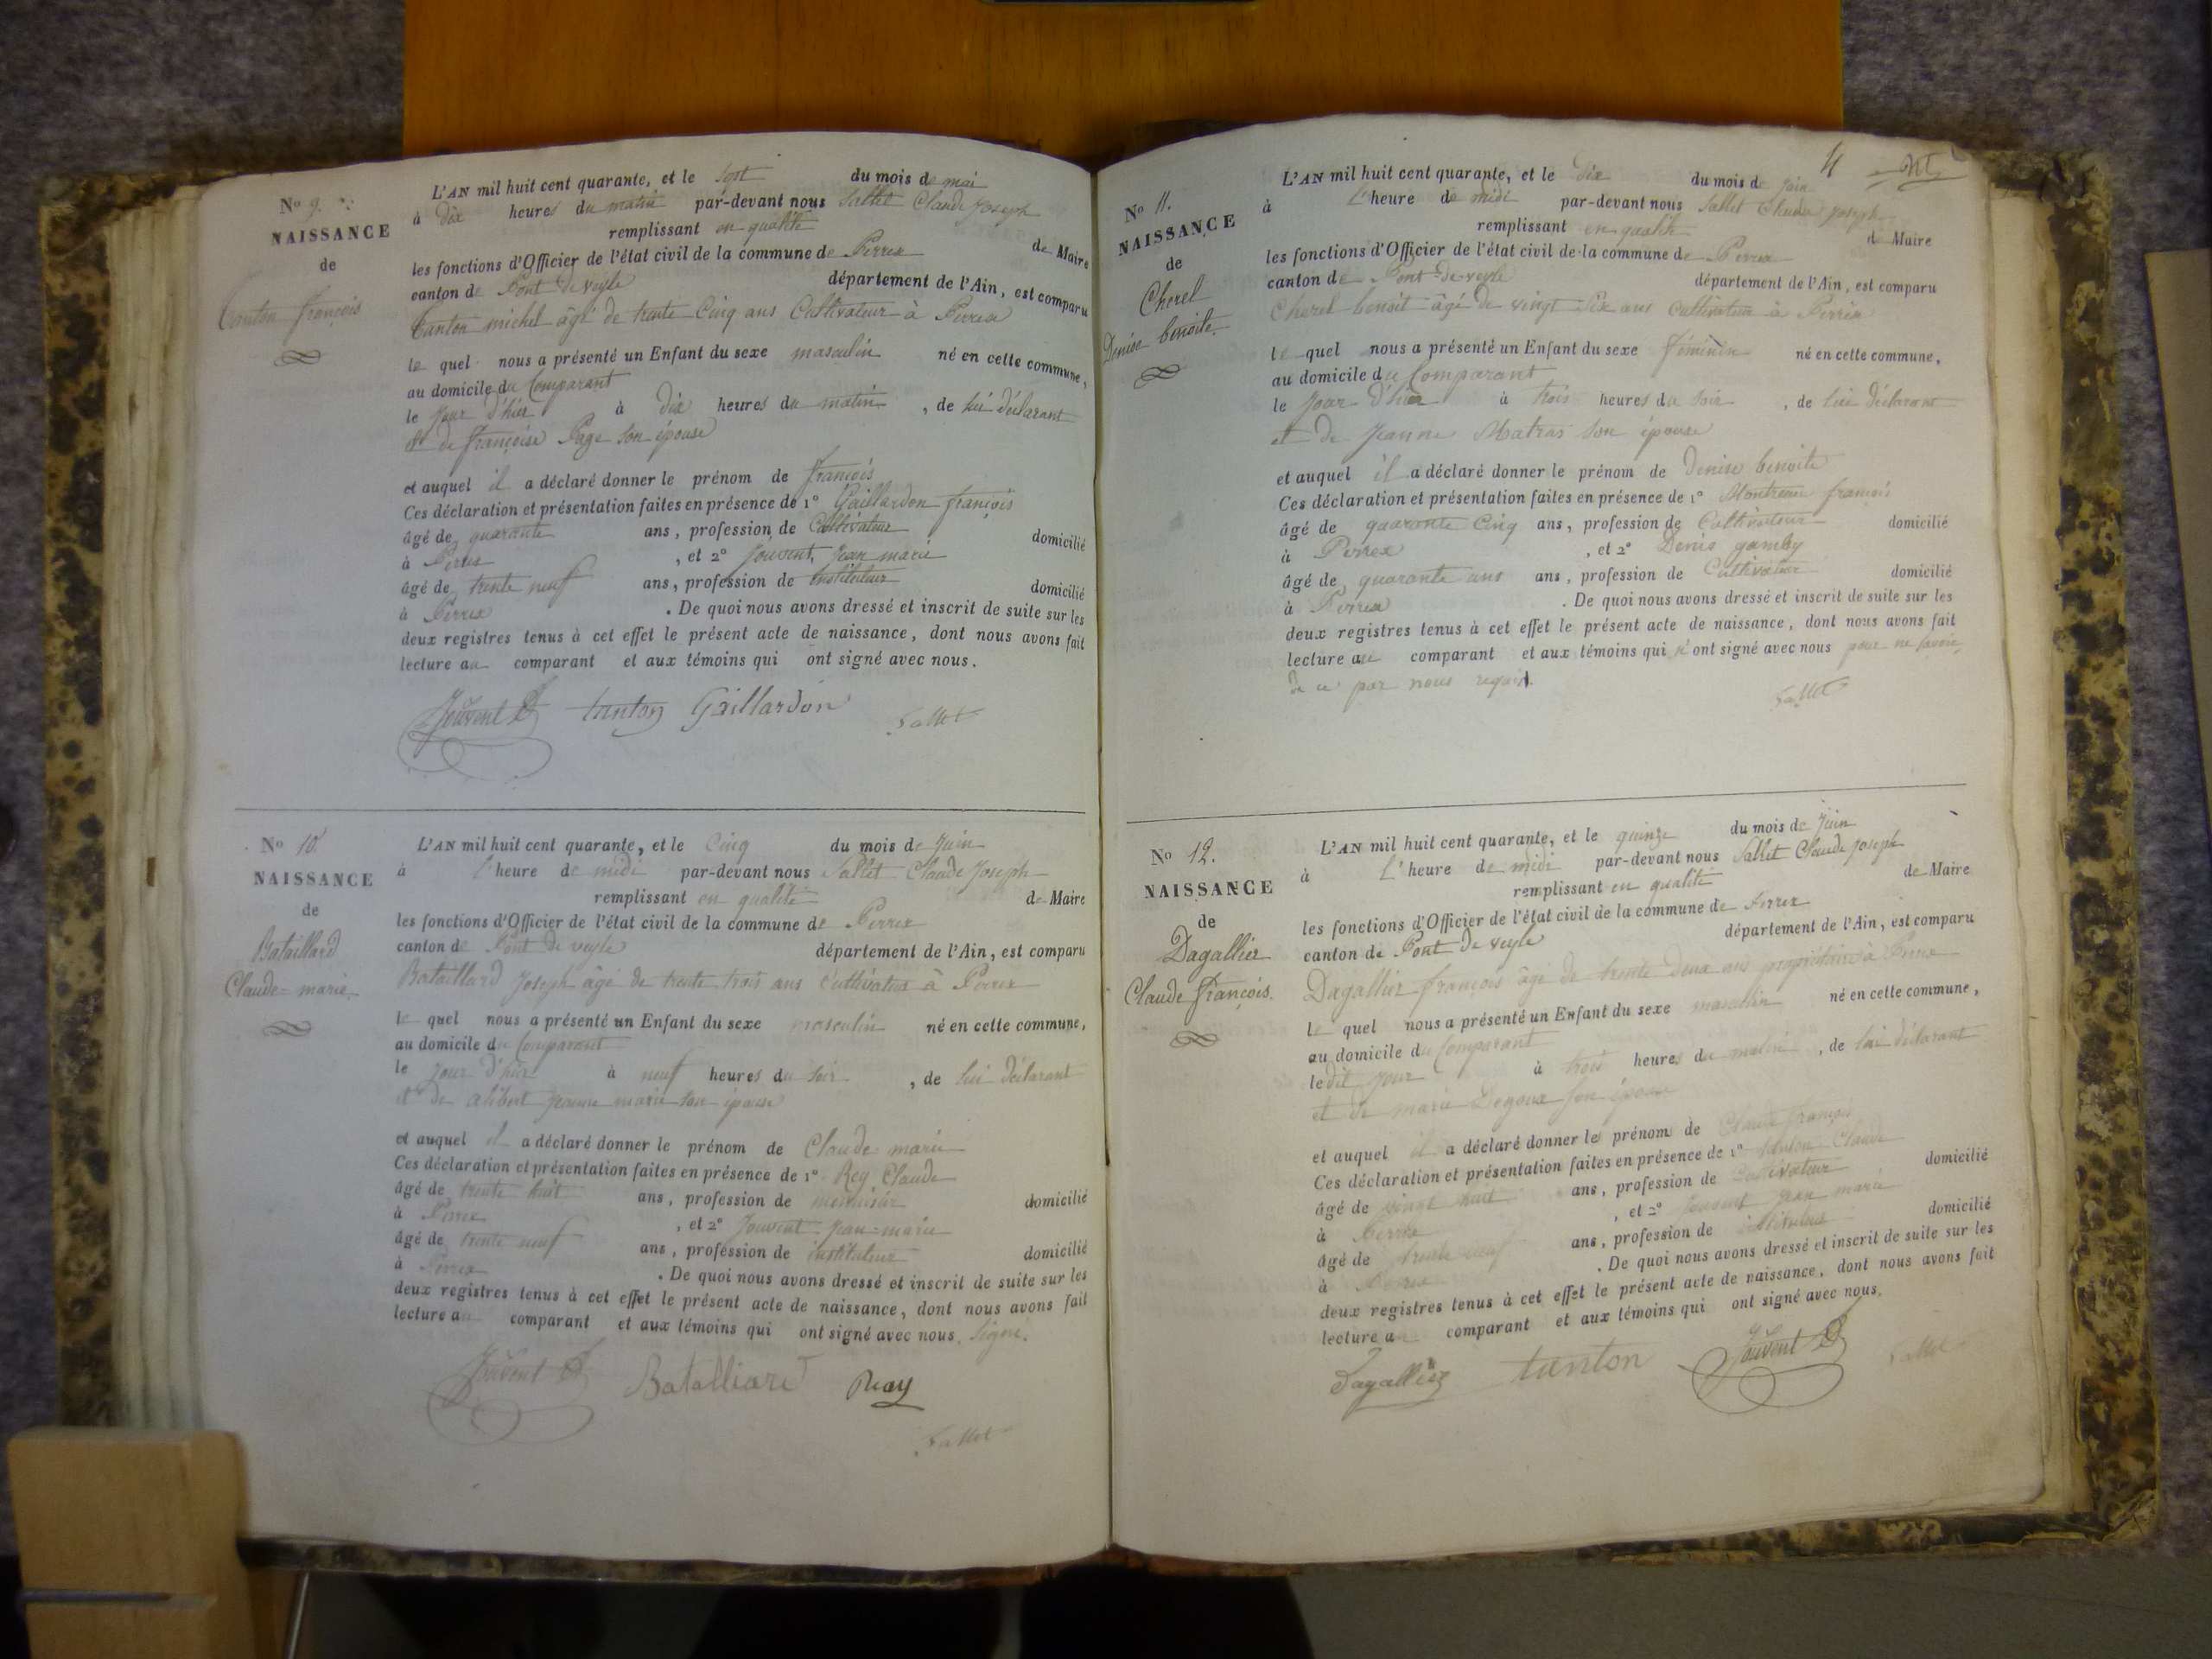 No 9.
NAISSANCE
de
Tanton françois
L'AN mil huit cent quarante, et le sept du mois de mai
à dix heures du matin par-devant nous Sallet Claude Joseph
remplissant en qualité de Maire
les fonctions d'Officier de l'état civil de la commune de Perrex
canton de Pont de veyle département de l'Ain, est comparu
Tanton michel âgé de trente cinq ans Cultivateur à Perrex
le quel nous a présenté un Enfant du sexe masculin né en cette commune,
au domicile du Comparant
le jour d'hier à dix heures du matin, de lui déclarant
et de françoise Page son épouse
et auquel il a déclaré donner le prénom de françois
Ces déclaration et présentation faites en présence de 1º Gaillardon françois
âgé de quarante ans, profession de Cultivateur domicilié
à Perrex, et 2º Jouvent, jean marie
âgé de trente neuf ans, profession de instituteur domicilié
à Perrex. De quoi nous avons dressé et inscrit de suite sur les
deux registres tenus à cet effet le présent acte de naissance, dont nous avons fait
lecture au comparant et aux témoins qui ont signé avec nous.
Jouvent tanton Gaillardon Sallet
No 10.
NAISSANCE
de
Bataillard
Claude-marie
L'AN mil huit cent quarante, et le Cinq du mois de juin
à l'heure de midi par-devant nous Sallet Claude Joseph
remplissant en qualité de Maire
les fonctions d'Officier de l'état civil de la commune de Perrex
canton de Pont de veyle département de l'Ain, est comparu
Bataillard Joseph âgé de trente trois ans Cultivateur à Perrex
le quel nous a présenté un Enfant du sexe masculin né en cette commune,
au domicile du Comparant
le jour d'hier à neuf heures du soir, de lui déclarant
et de alibert jeanne marie son épouse
et auquel il a déclaré donner le prénom de Claude marie
Ces déclaration et présentation faites en présence de 1º Rey Claude
âgé de trente huit ans, profession de menuisier domicilié
à Perrex, et 2º Jouvent jean-marie
âgé de trente neuf ans, profession de instituteur domicilié
à Perrex. De quoi nous avons dressé et inscrit de suite sur les
deux registres tenus à cet effet le présent acte de naissance, dont nous avons fait
lecture au comparant et aux témoins qui ont signé avec nous. Signé.
Jouvent Batalliard Reay
Sallet
4
No 11.
NAISSANCE
de
Cherel
Denise benoite.
L'AN mil huit cent quarante, et le dix du mois de juin
à l'heure de midi par-devant nous Sallet Claude joseph
remplissant en qualité de Maire
les fonctions d'Officier de l'état civil de la commune de Perrex
canton de Pont-de-veyle département de l'Ain, est comparu
Cherel benoit âgé de vingt six ans cultivateur à Perrex
le quel nous a présenté un Enfant du sexe féminin né en cette commune,
au domicile du Comparant
le jour d'hier à trois heures du soir, de lui déclarant
et de jeanne Matras son épouse
et auquel il a déclaré donner le prénom de Denise benoite
Ces déclaration et présentation faites en présence de 1º françois
âgé de quarante cinq ans, profession de Cultivateur domicilié
à Perrex, et 2º Denis gamby
âgé de quarante ans ans, profession de Cultivateur domicilié
à Perrex. De quoi nous avons dressé et inscrit de suite sur les
deux registres tenus à cet effet le présent acte de naissance, dont nous avons fait
lecture au comparant et aux témoins qui n'ont signé avec nous pour ne savoir
de ce par nous requis.
Sallet
No 12.
NAISSANCE
de
Dagallier
Claude françois.
L'AN mil huit cent quarante, et le quinze du mois de juin
à l'heure de midi par-devant nous Sallet Claude joseph
remplissant en qualité de Maire
les fonctions d'Officier de l'état civil de la commune de Perrex
canton de Pont de veyle département de l'Ain, est comparu
Dagallier françois âgé de trente deux ans propriétaire à Perrex
le quel nous a présenté un Enfant du sexe masculin né en cette commune,
au domicile du Comparant
le dit jour à trois heures du matin, de lui déclarant
et de marie Degoux son épouse
et auquel il a déclaré donner le prénom de Claude françois
Ces déclaration et présentation faites en présence de 1º tanton Claude
âgé de vingt huit ans, profession de Cultivateur domicilié
à Perrex, et 2º Jouvent jean marie
âgé de trente neuf ans, profession de instituteur domicilié
à Perrex. De quoi nous avons dressé et inscrit de suite sur les
deux registres tenus à cet effet le présent acte de naissance, dont nous avons fait
lecture au comparant et aux témoins qui ont signé avec nous.
Dagallier tanton Jouvent Sallet